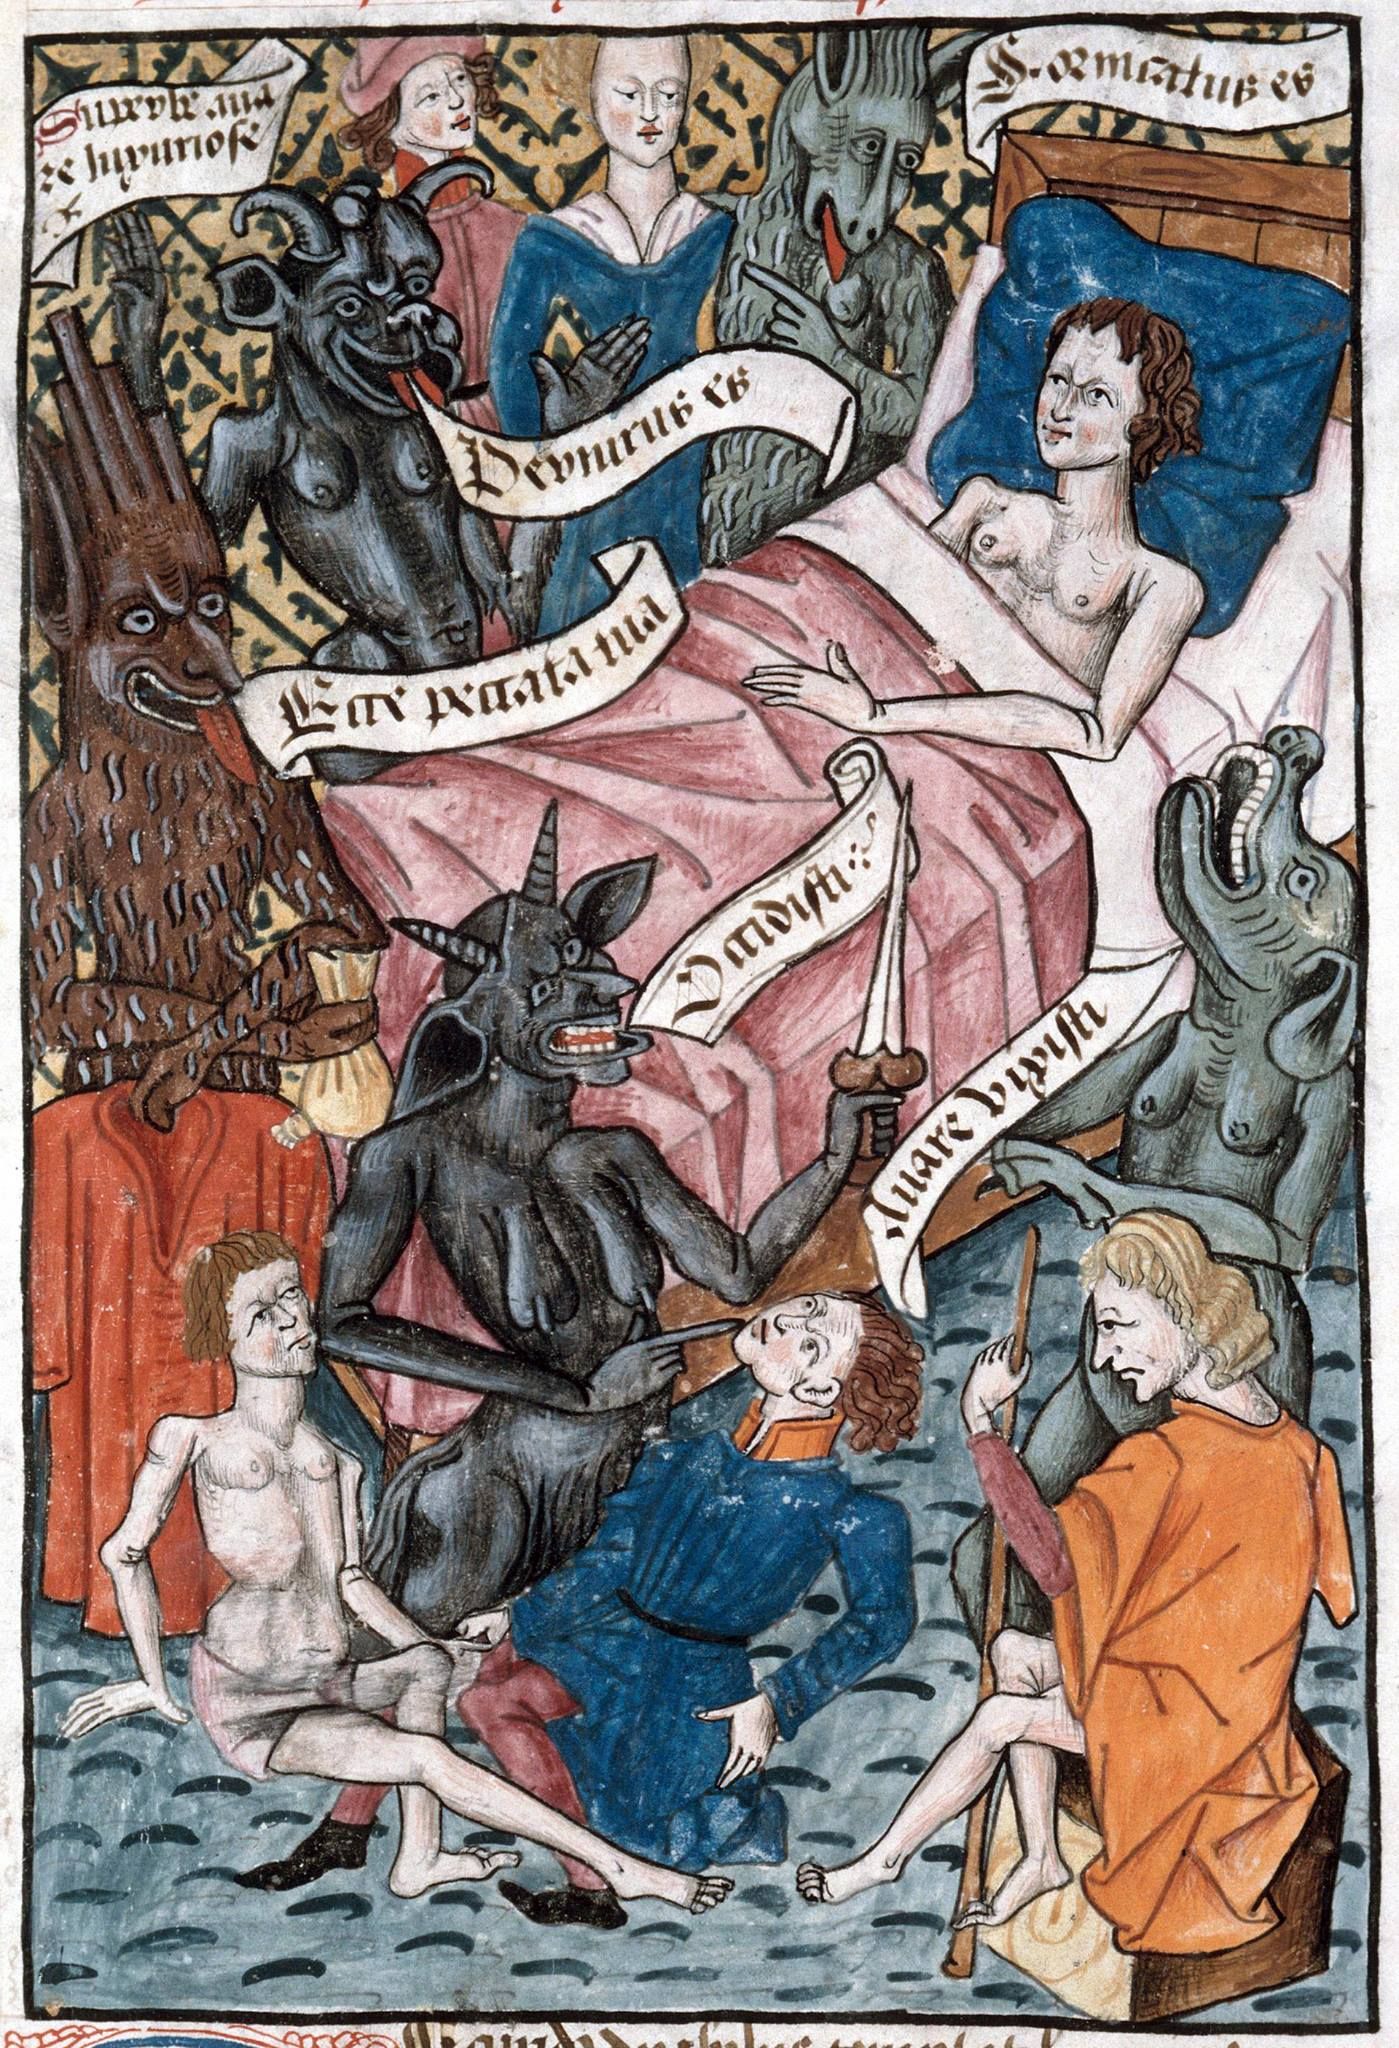 Superbe aua
re luxuriose
Fornicatus es
Periurus es
Ecce peccata tua
Occidisti
Auare vixisti